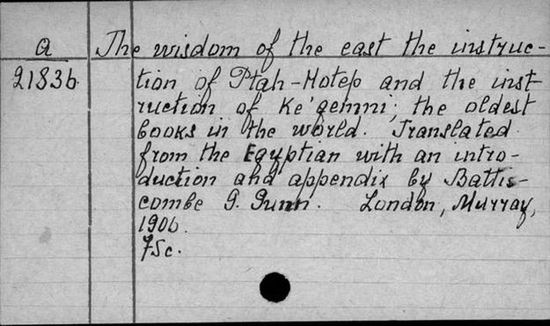 a
The wisdom of the east the instruc-
21836
tion of Ptah-Hotep and the inst-
ruction of Ke'gemni; the oldest
books in the world. Translated
from the Egyptian with an intro-
duction and appendix by Battis-
combe G. Gunn. London, Murray,
1906.
75c.